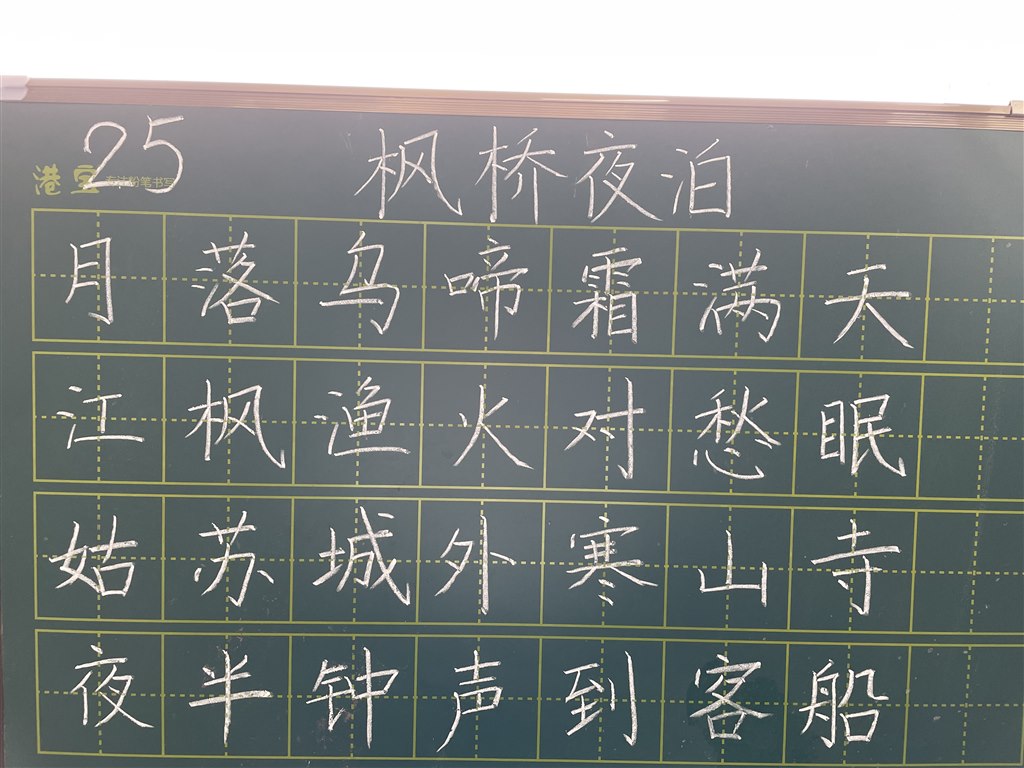 25 枫桥夜泊
港宝
月落鸟啼霜满天
江枫渔火对愁眠
姑苏城外寒山寺
夜半钟声到客船